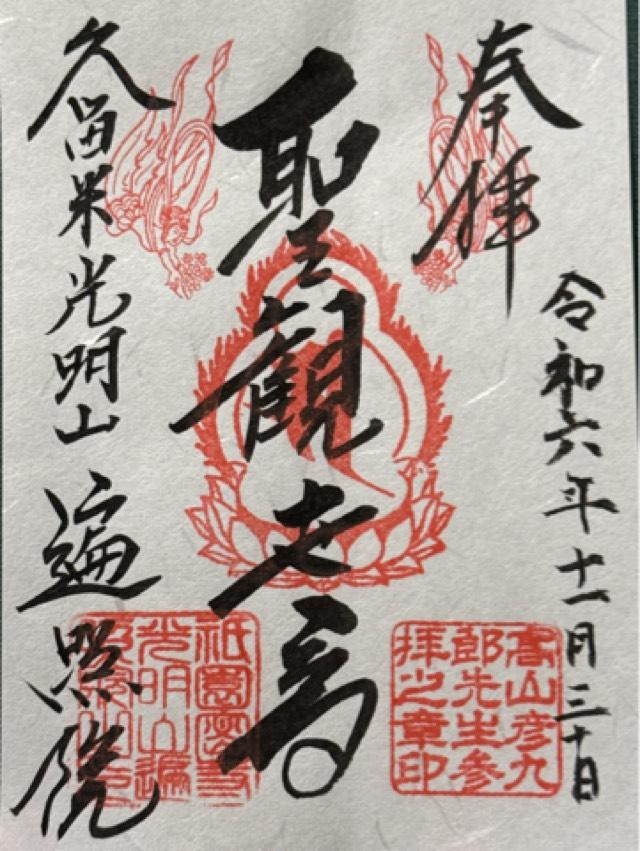 奉拝
令和六年十一月三十日
聖観世音
久留米光明山 遍照院
高山彦九
郎先生参
拝之章印